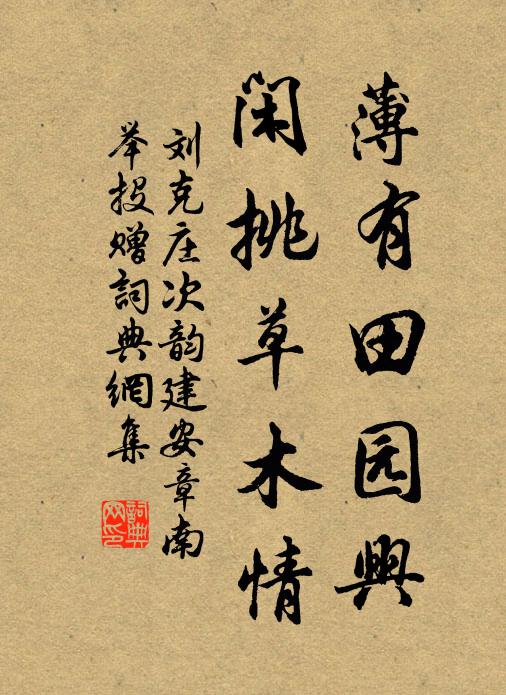 薄有田园興
闲挑草木情
刘克庄次韵建安章南
举投赠詞典網集
詞典
网印